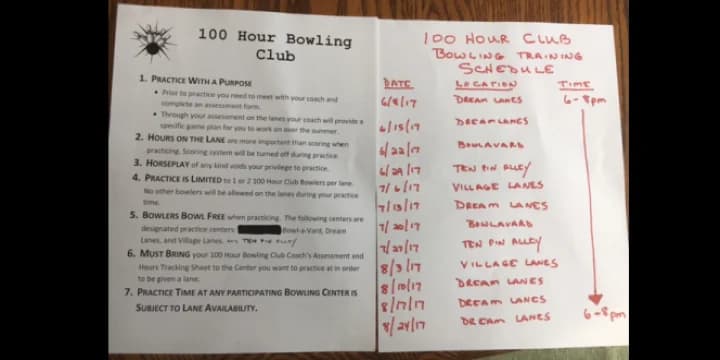 100 Hour Bowling
Club
1. PRACTICE WITH A PURPOSE
• Prior to practice you need to meet with your coach and
complete an assessment form.
• Through your assessment on the lanes your coach will provide a
specific game plan for you to work on over the summer.
2. HOURS ON THE LANE are more important than scoring when
practicing. Scoring system will be turned off during practice.
3. HORSEPLAY of any kind voids your privilege to practice.
4. PRACTICE IS LIMITED to 1 or 2 100 Hour Club Bowlers per lane.
No other bowlers will be allowed on the lanes during your practice
time.
5. BOWLERS BOWL FREE when practicing. The following centers are
designated practice centers: Bowl-a-Vard, Dream
Lanes, and Village Lanes. AND TEN PIN ALLEY
6. MUST BRING your 100 Hour Bowling Club Coach's Assessment and
Hours Tracking Sheet to the Center you want to practice at in order
to be given a lane.
7. PRACTICE TIME AT ANY PARTICIPATING BOWLING CENTER IS
SUBJECT TO LANE AVAILABILITY.
100 HOUR CLUB
BOWLING TRAINING
SCHEDULE
DATE LOCATION TIME
6/8/17 DREAM LANES 6-8pm
6/15/17 DREAM LANES
6/22/17 BOWLAVARD
6/29/17 TEN PIN ALLEY
7/6/17 VILLAGE LANES
7/13/17 DREAM LANES
7/20/17 BOWLAVARD
7/27/17 TEN PIN ALLEY
8/3/17 VILLAGE LANES
8/10/17 DREAM LANES
8/17/17 DREAM LANES
8/24/17 DREAM LANES 6-8pm